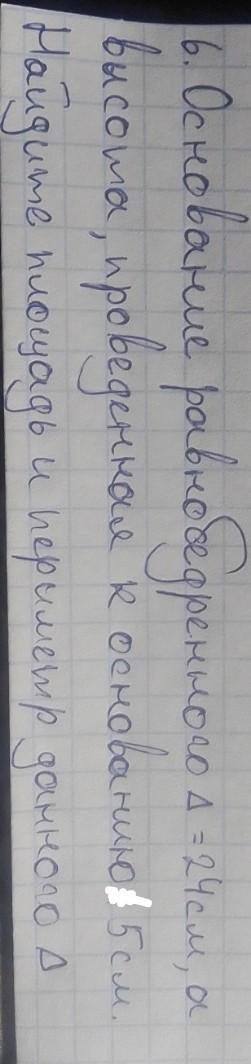 6. Основание равнобедренного Δ = 24см, а
высота, проведенная к основанию 5см.
Найдите площадь и периметр данного Δ